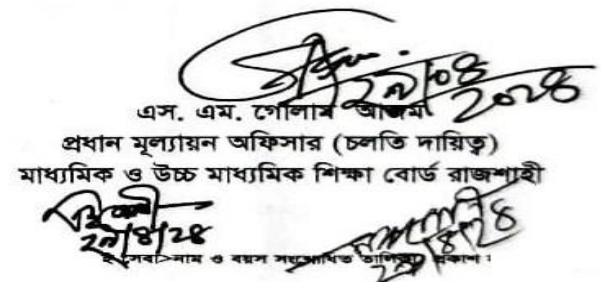 ২৯/০৪
২০২৪
এস. এম. গোলাম আজম
প্রধান মূল্যায়ন অফিসার (চলতি দায়িত্ব)
মাধ্যমিক ও উচ্চ মাধ্যমিক শিক্ষা বোর্ড রাজশাহী
২৯/৪/২৪
২৯/৪/২৪
ই সেবা>নাম ও বয়স সংশোধিত তালিকা প্রকাশ।